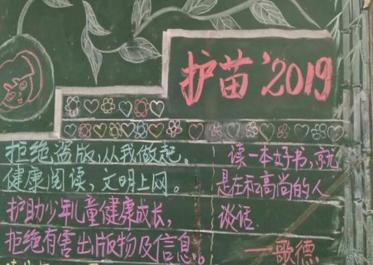 护苗'2019
拒绝盗版,从我做起,
健康阅读,文明上网。
护助少年儿童健康成长,
拒绝有害出版物及信息。
读一本好书,就
是在和高尚的人
谈话.
——歌德